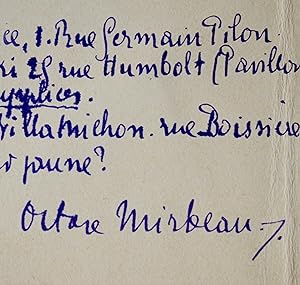 ce, 1. Rue Germain Pilon
ri 25 rue Humbolt (Pavillon
upplices.
Villa Michon. rue Boissière
jaune?
Octave Mirbeau